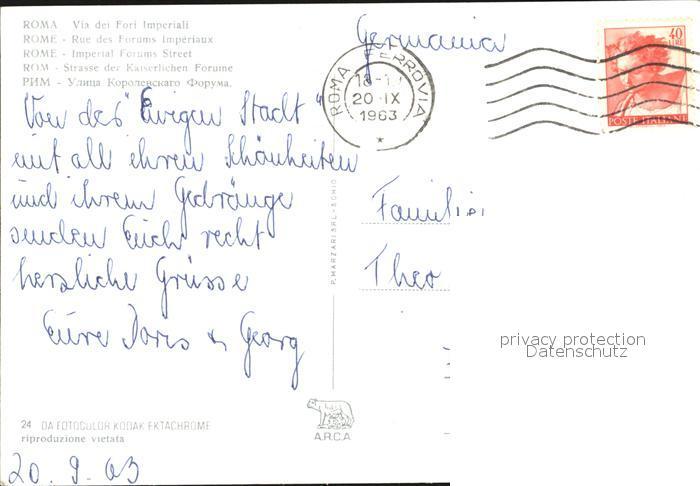 ROMA Via dei Fori Imperiali
ROME - Rue des Forums Impériaux
ROME - Imperial Forums Street
ROM - Strasse der Kaiserlichen Forume
РИМ - Улица Королевскаго Форума.
Germania
ROMA FERROVIA
20 IX
1963
40
LIRE
POSTE ITALIANE
Von des "Ewigen Stadt"
mit all ihren Schönheiten
und ihrem Gedränge
senden Euch recht
herzliche Grüsse
Eure Doris & Georg
P. MARZARI S.R.L. - SCHIO
Familie
Theo
privacy protection
Datenschutz
24 DA FOTOCOLOR KODAK EKTACHROME
riproduzione vietata
A.R.C.A.
20. 9. 63